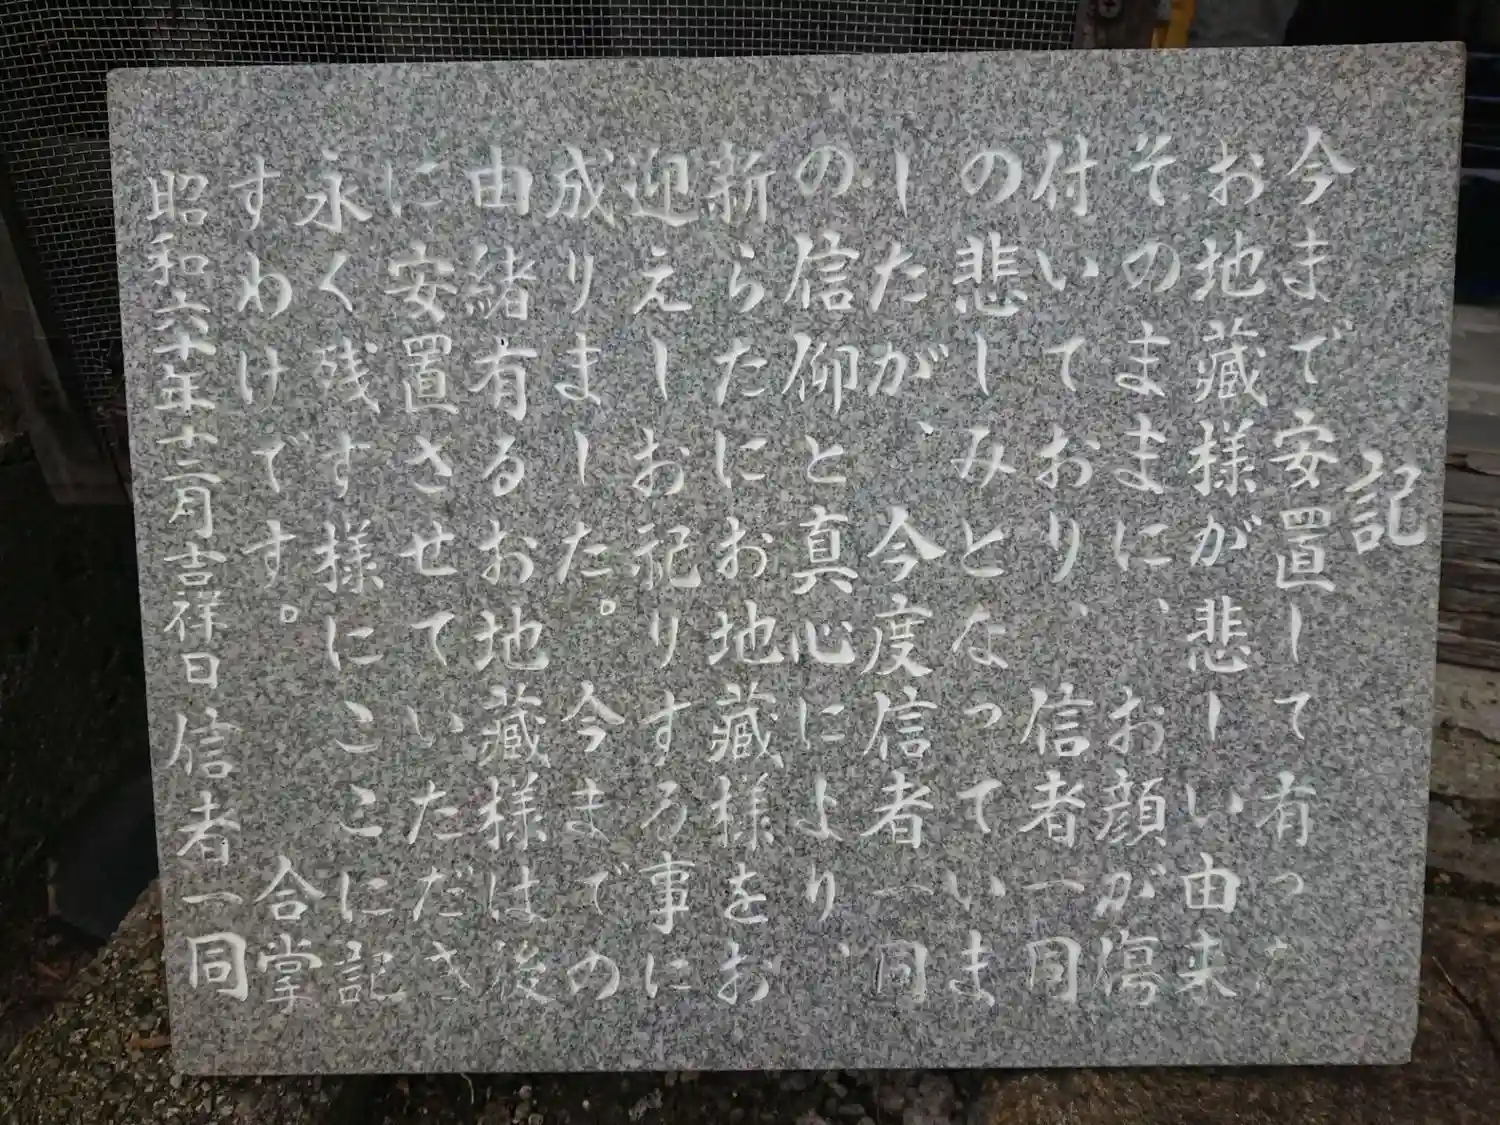 記
今まで安置して有った
お地蔵様が悲しい由来
そのままに、お顔が傷
付いており、信者一同
の悲しみとなっていま
したが、今度信者一同
の信仰と真心により、
新らたにお地蔵様をお
迎えしお祀りする事に
成りました。今までの
由緒有るお地蔵様は後
に安置させていただき
永く残す様にここに記
すわけです。 合掌
昭和六十年十二月吉祥日 信者一同